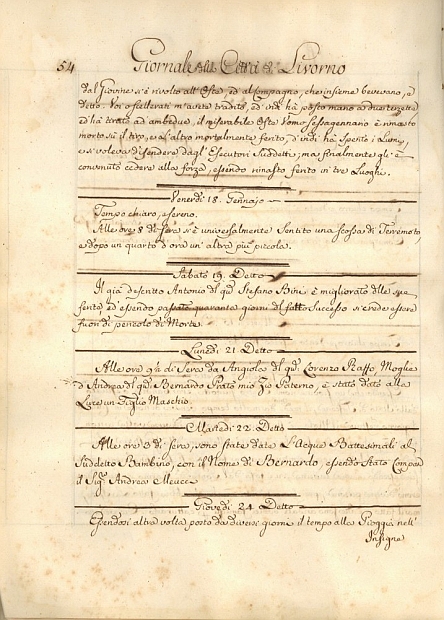 54 Giornale della Città di Livorno
dal Giovine si è rivolto all'Oste, ed al Compagno, che insieme bevevano, e
detto. Voi scellerati m'avete tradito, ed indi hà posto mano a due terzette
ed hà tirato ad ambedue, il miserabile Oste Uomo sessagennario è rimasto
morto sù il tiro, e l'altro mortalmente ferito, d'indi hà spento i Lumi,
e si voleva difendere dagl'Esecutori Suddetti, ma finalmente gli è
convenuto cedere alla forza, essendo rimasto ferito in tre Luoghi.
Venerdì 18. Gennajo
Tempo chiaro, e sereno.
Alle ore 8 di sera si è universalmente Sentito una scossa di Terremoto,
e dopo un quarto d'ora un'altra più piccola.
Sabato 19. Detto
Il già descritto Antonio del qu. Stefano Bini è migliorato delle sue
ferite, ed essendo passato quaranta giorni del fatto Successo si crede essere
fuori di pericolo di Morte.
Lunedì 21. Detto
Alle ore 9½ di Sera da Angiola del qu. Lorenzo Raffo, Moglie
d'Andrea del qu. Bernardo Prato mio Zio Paterno, è stato dato alla
Luce un Figlio Maschio
Martedì 22. Detto
Alle ore 3 di sera, sono state date L'Acque Battesimali al
Suddetto Bambino, con il Nome di Bernardo, essendo Stato Compare
il Sig. Andrea Meucci
Giovedì 24. Detto
Essendosi altra volta posto da diversi giorni il tempo alla Pioggia, nell'
Insigne